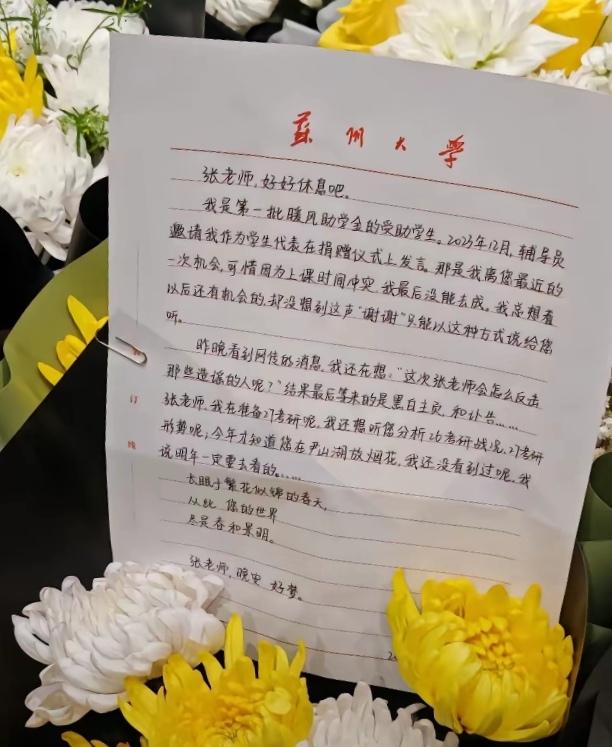 蘇州大学
张老师，好好休息吧。
我是第一批暖风助学金的受助学生。2023年12月，辅导员
邀请我作为学生代表在捐赠仪式上发言。那是我离您最近的
一次机会，可惜因为上课时间冲突，我最后没能去成。我总想着
以后还有机会的，却没想到这声“谢谢”只能以这种方式说给您
听。
昨晚看到网传的消息，我还在想：“这次张老师会怎么反击
那些造谣的人呢？”结果最后等来的是黑白主页，和讣告……
张老师，我在准备27考研呢，我还想听您分析26考研战况，27考研
形势呢；今年才知道您在尹山湖放烟花，我还没看到过呢，我
说明年一定要去看的……
长眠于繁花似锦的春天，
从此 您的世界
尽是春和景明。
张老师，晚安 好梦。
订
线
2